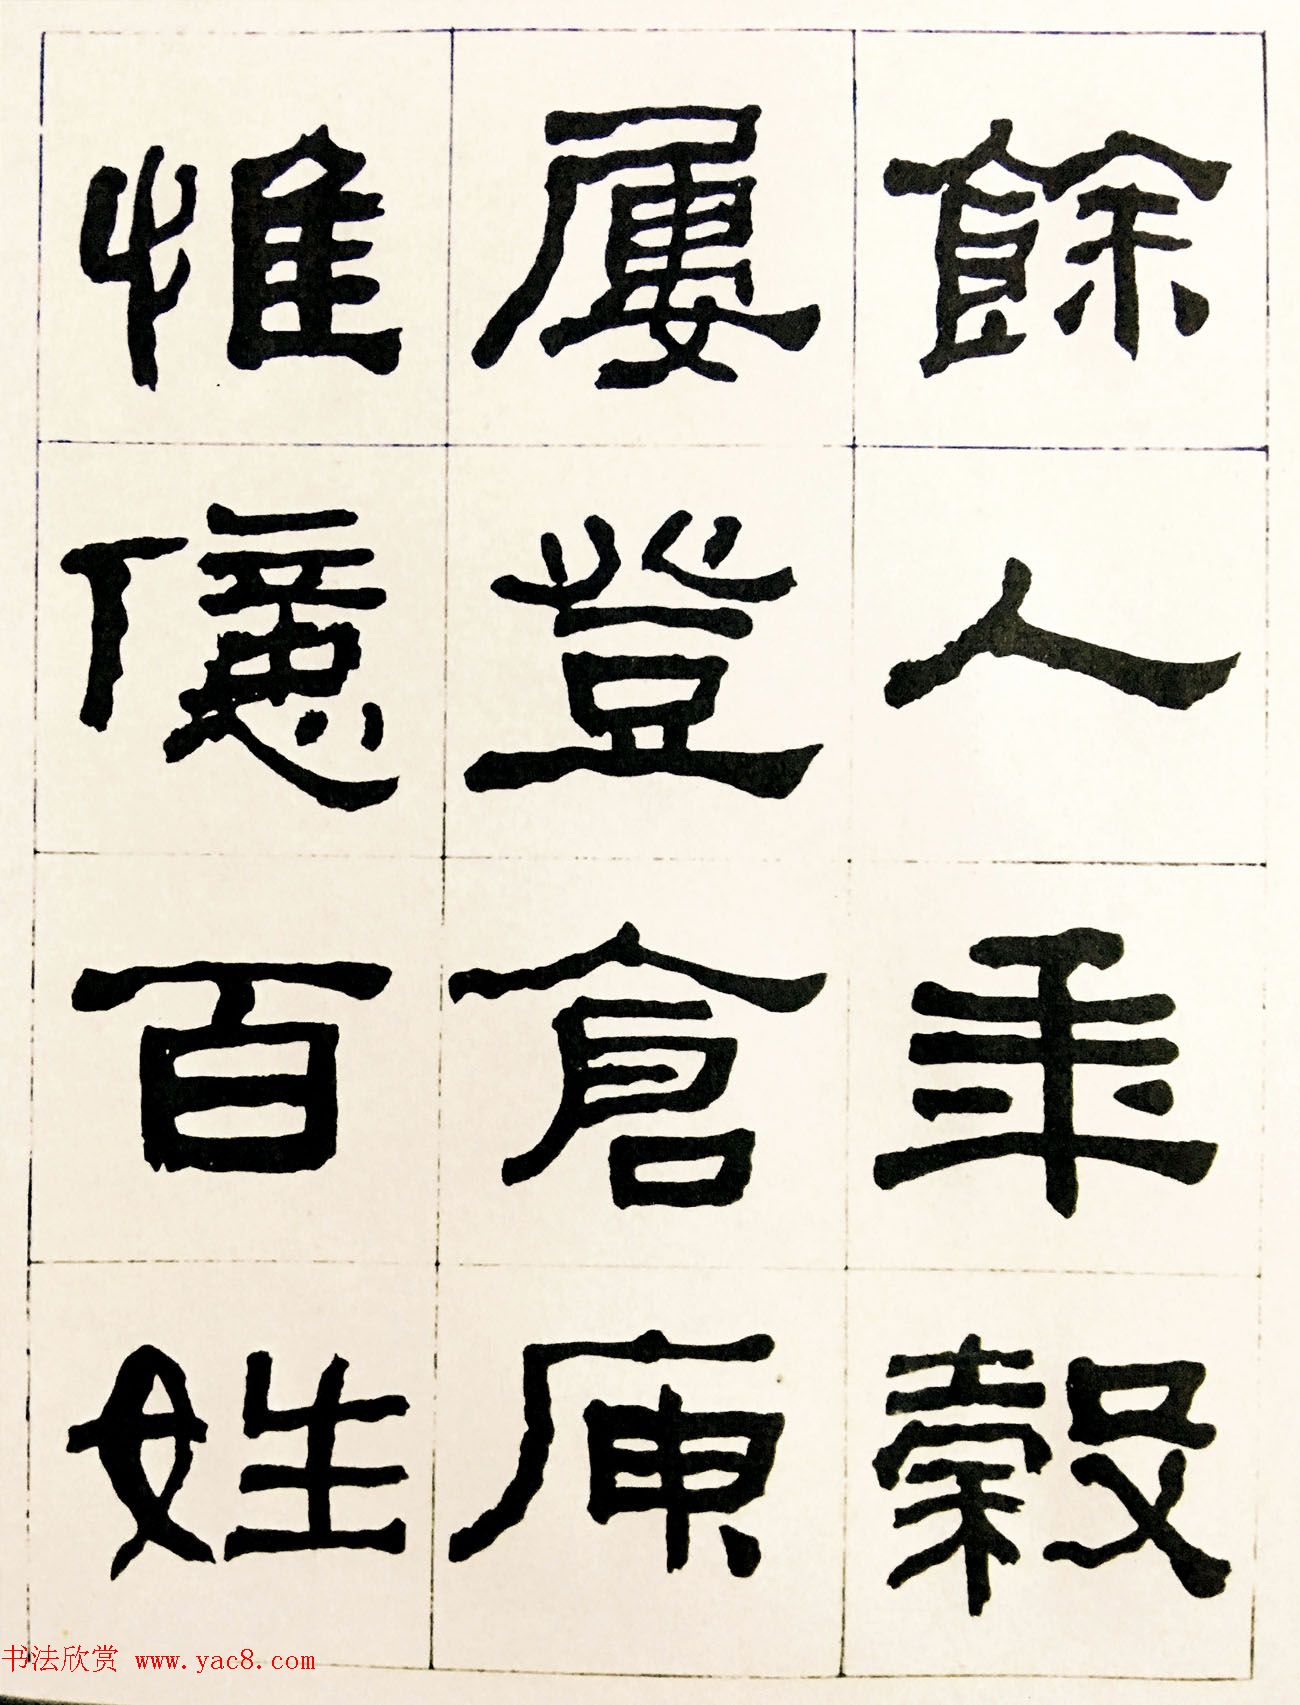 餘人年穀
屢登倉庾
惟億百姓
书法欣赏 www.yac8.com